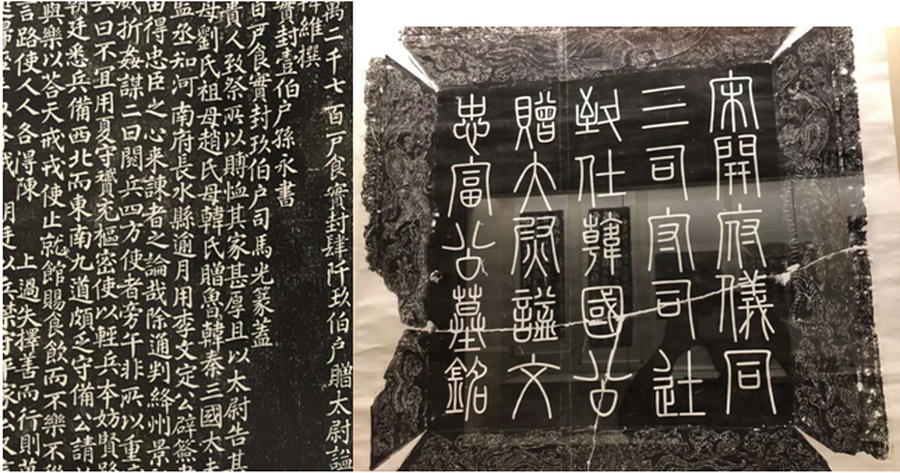 萬二千七百戶食實封肆阡玖伯户 贈太尉諡
維撰
實封壹伯户孫永書
百户食實封玖伯户司馬光篆蓋
貴人致祭所以賻恤其家甚厚且以太尉告其
母劉氏祖母趙氏母韓氏贈魯韓秦三國太
監丞知河南府長水縣逾月用李文定公辟簽
由得忠臣之心来諫者之論哉除通判絳州景
威折姦謀二曰閱兵四方使者旁午非所以重
曰不宜用夏守贇充樞密使以輕兵本妨賢路
朝廷悉兵備西北而東南九道頗乏守備公請
與樂以荅天戒戎使止就館賜食飲而不樂不
言路使人人各得陳 上過失擇善而行則
宋開府儀同
三司守司徒
致仕韓國公
贈太尉謚文
忠富公墓銘